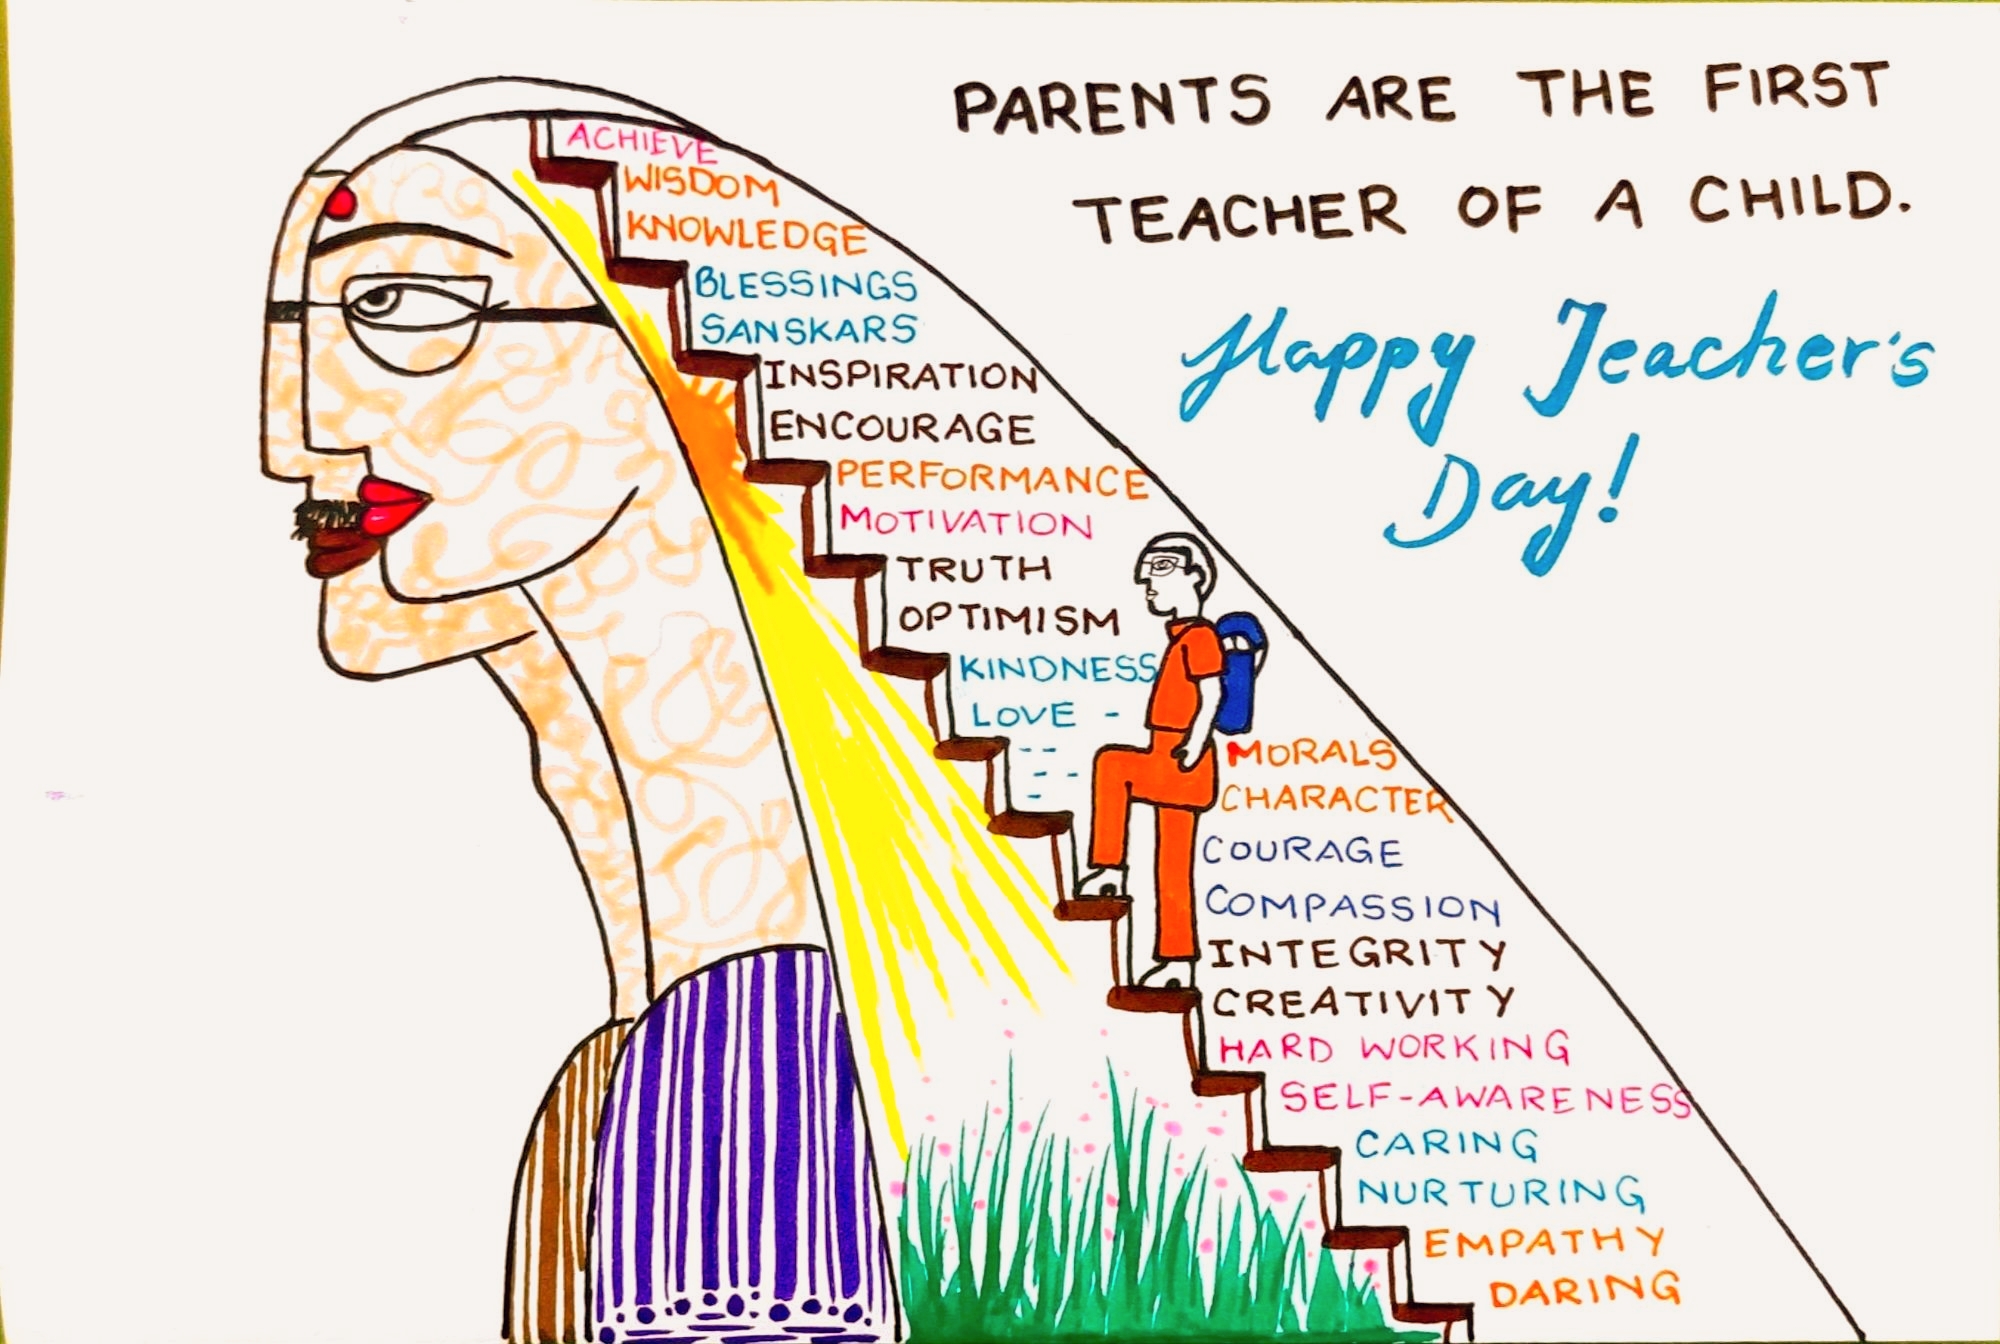 PARENTS ARE THE FIRST
TEACHER OF A CHILD.
Happy Teacher's
Day!
ACHIEVE
WISDOM
KNOWLEDGE
BLESSINGS
SANSKARS
INSPIRATION
ENCOURAGE
PERFORMANCE
MOTIVATION
TRUTH
OPTIMISM
KINDNESS
LOVE -
MORALS
CHARACTER
COURAGE
COMPASSION
INTEGRITY
CREATIVITY
HARD WORKING
SELF-AWARENESS
CARING
NURTURING
EMPATHY
DARING